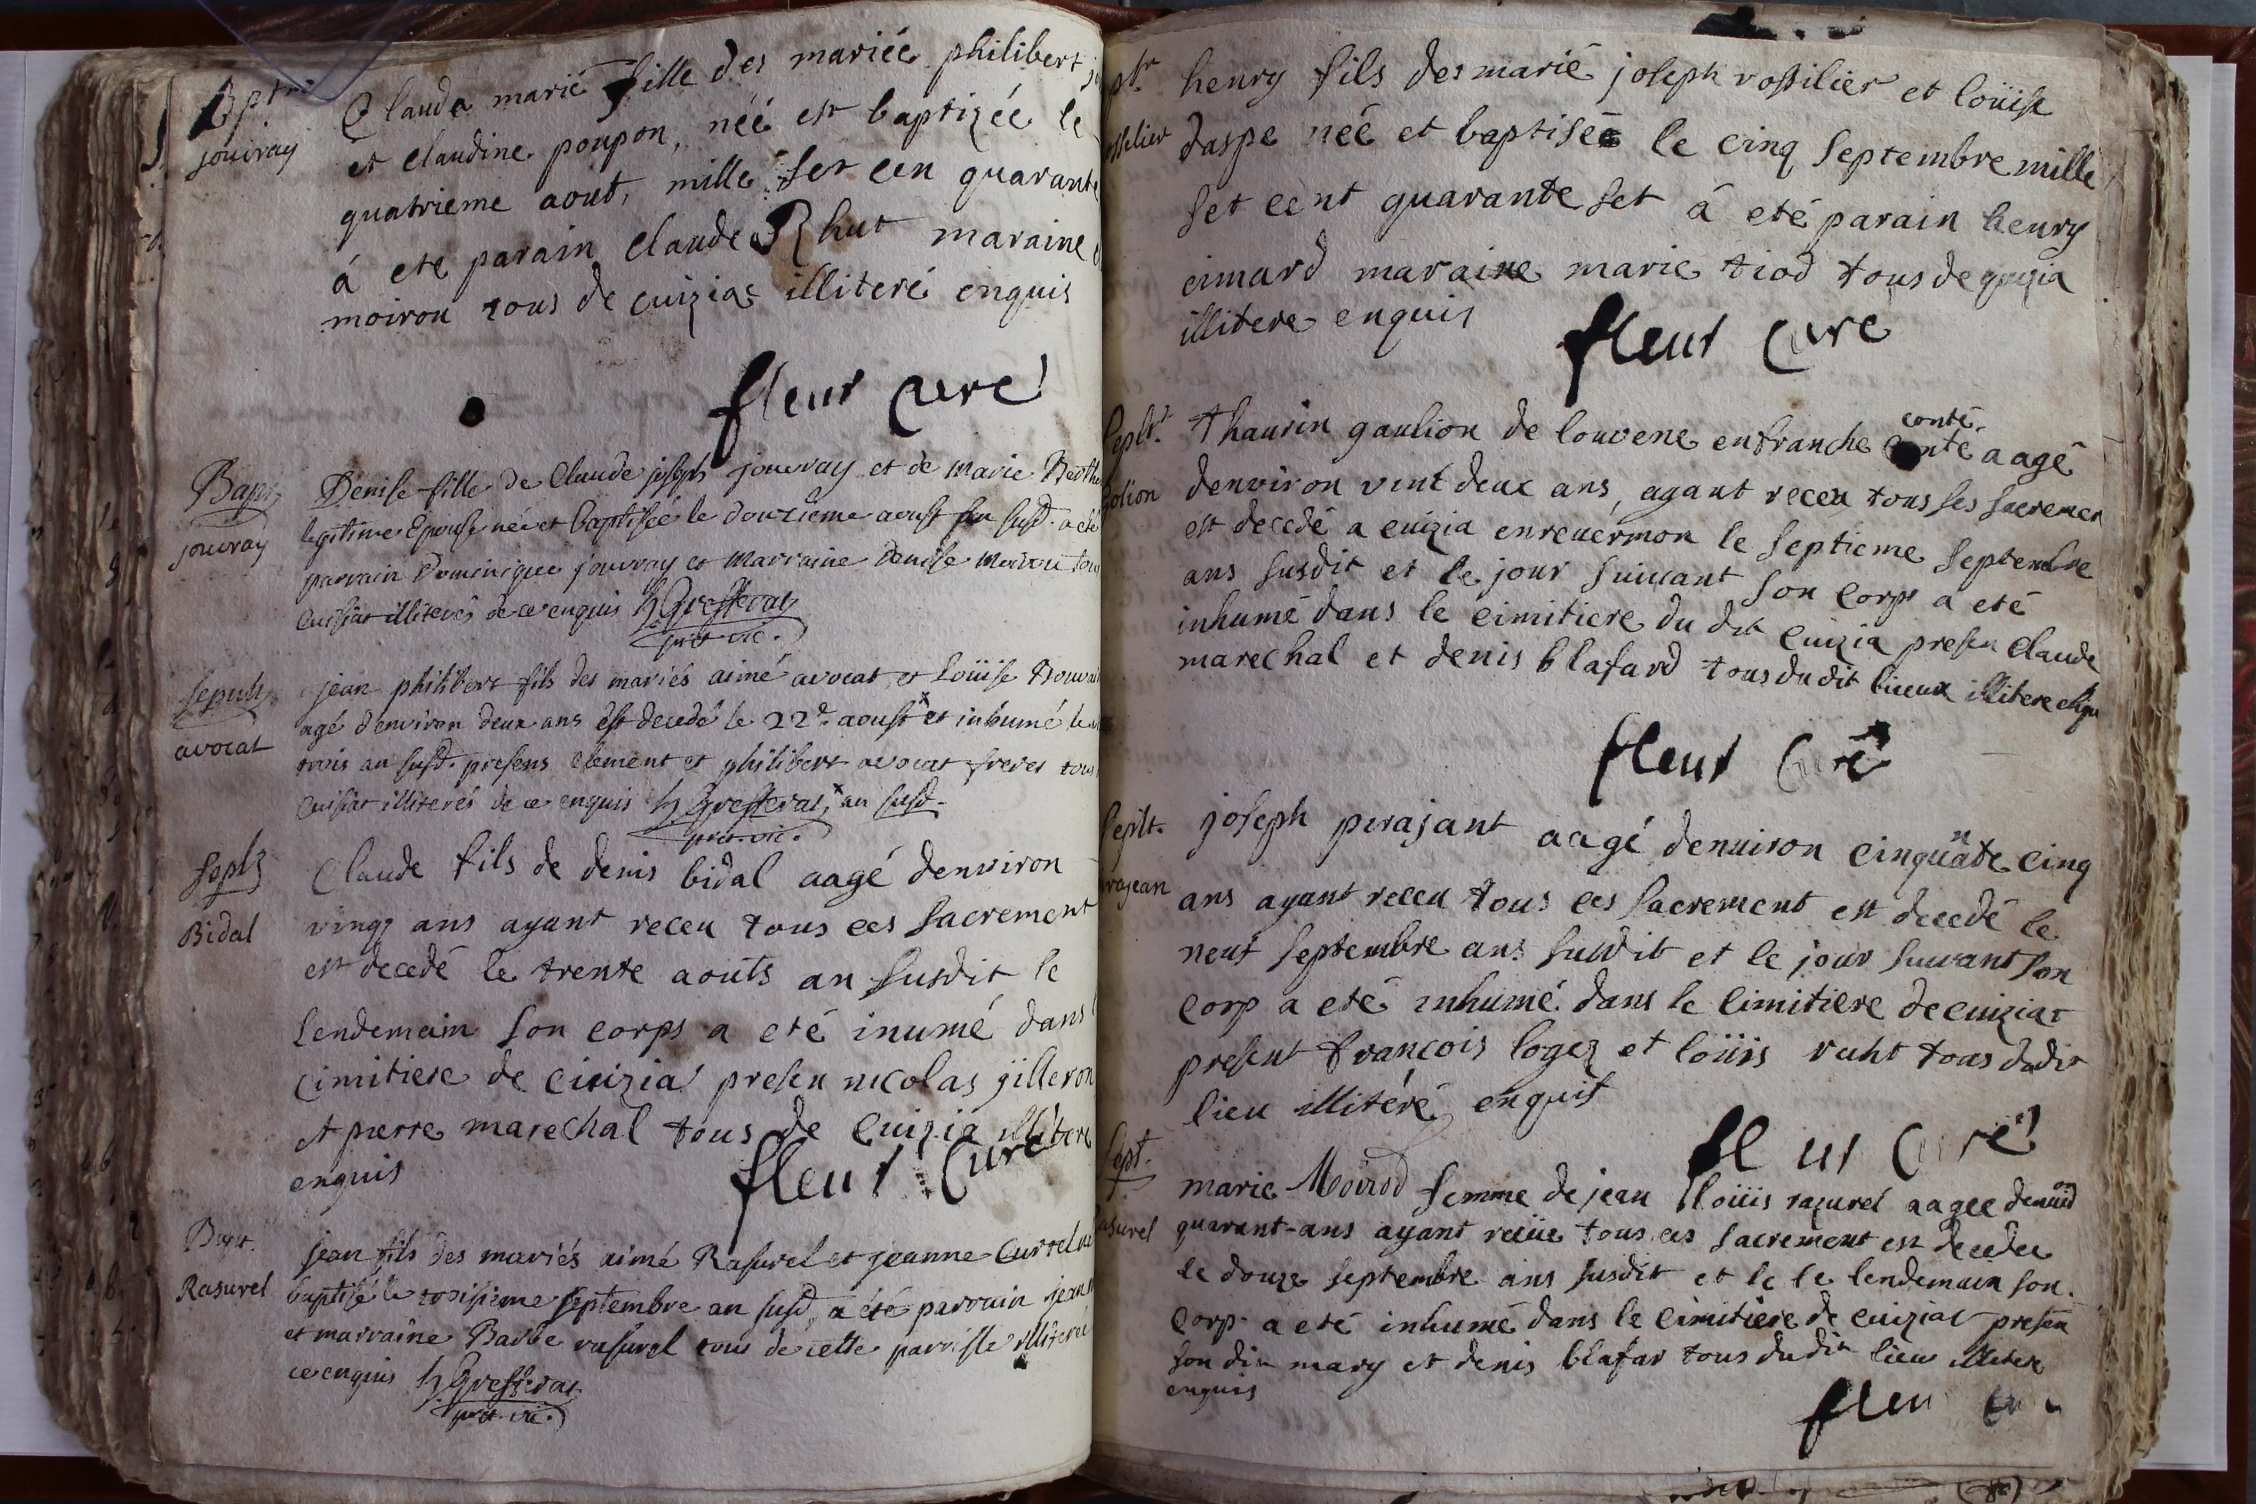 Bpt.
jouvray
Clauda marie fille des mariée philibert
et claudine poupon, néé est baptizée le
quatrieme aout, mille set cen quarante
á ete parain claude Rhut maraine
moirou tous de cuiziat illiteré enquis
fleur curé
Bapt
jouvray
Denise fille de Claude joseph jouvray et de Marie
legitime Epouse née et baptisée le douzieme aoust an susd. a eté
parrain Dominique jouvray et Marraine denise Moirou tous
Cuisiat illiterés de ce enquis h Greffera
pret. vic.
sepult
avocat
jean philibert fils des mariés aimé avocat et Loüise
agé d'environ deux ans est decedé le 22e. aoust x et inhumé le
trois an susd. presens Clement et philibert avocat freres tous
Cuisiat illiterés de ce enquis h Greffera x an susd.
pret. vic.
Sepl
Bidal
Claude fils de denis bidal aagé denviron
vingt ans ayant receu tous ces sacrement
est decedé le trente aoûts an susdit le
lendemain son corps a eté inumé dans
cimitiere de cuizia presen nicolas gilleron
et pierre marechal tous de Cuizia illitere
enquis
fleur Curé
Bapt.
Rasurel
jean fils des mariés aimé Rasurel et jeanne Curtel
baptisé le troisieme septembre an susd. a été parrain jean
et marraine Barbe rasurel tous de cette parroisse illiteré
ce enquis h Greffera
pret. vic.
henry fils des marié joseph rossilier et loüise
daspe néé et baptisée le cinq septembre mille
set cent quarante set á eté parain henry
cimard maraine marie tiod tous de cuizia
illitere enquis
fleur Cure
Seplt.
golion
conté
Thaurin gaulion de louvene enfranche conte aagé
denviron vint deux ans, ayant receu tous ses sacremen
est decedé a cuizia enrevermon le septieme septembre
ans susdit et le jour suivant son corps a eté
inhumé dans le cimitiere du dit Cuizia presen Claude
marechal et denis blafard tous dudit lieux illitere
fleur Curé
Seplt.
joseph perajant aagé denviron cinquante cinq
ans ayant receu tous ces sacrement est decedé le
neuf septembre ans susdit et le jour suivant son
corp a eté inhumé dans le cimitiere de cuiziat
present francois logez et loüis ruht tous dudit
lieu illitéré enquis
fleur Curé
Sept.
asurel
marie Moirod femme de jean loüis razurel aagee denviron
quarant-ans ayant recüe tous ces sacrement est decedee
le douze septembre ans susdit et le le lendemain son
corp a eté inhumé dans le cimitiere de cuiziat presen
son dit mary et denis blafar tous dudit lieu illitere
enquis
fleur